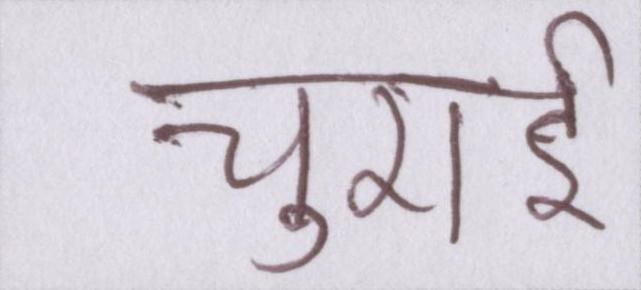 चुराई